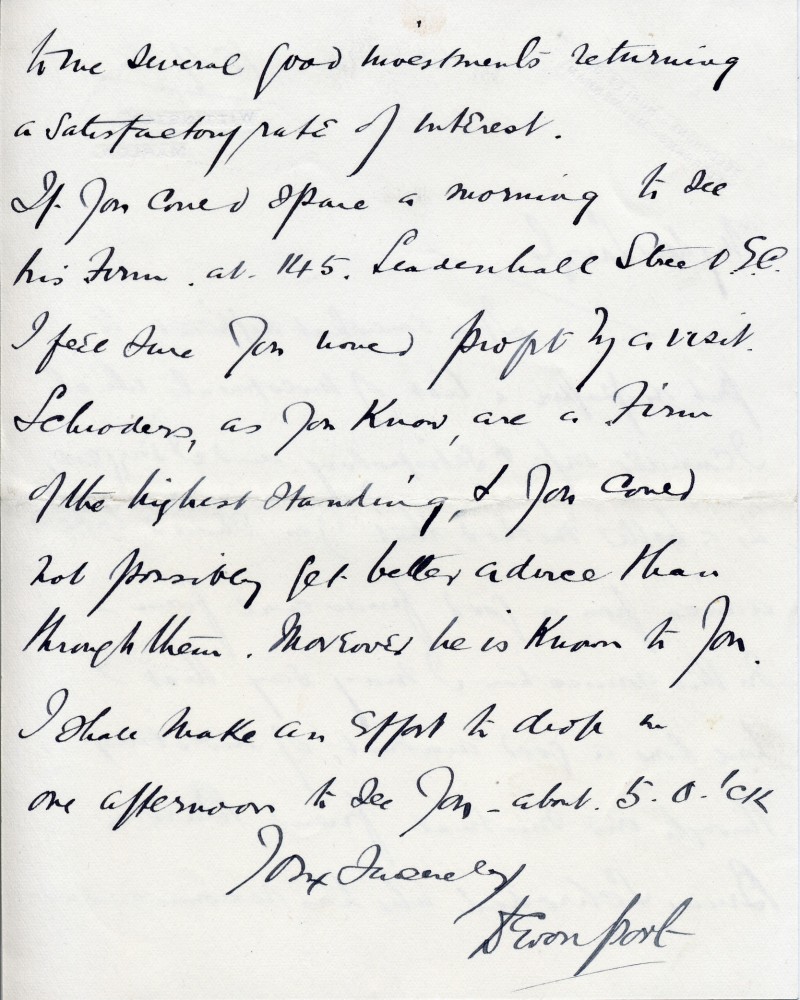 to me several good investments returning
a satisfactory rate of interest.
If you could spare a morning to see
his Firm. at. 145. Leadenhall Street E.C.
I feel sure you would profit by a visit.
Schroders, as you know, are a Firm
of the highest standing, & you could
not possibly get better advice than
through them. Moreover he is known to you.
I shall make an effort to drop in
one afternoon to see you - about. 5. o.'ck
Yours Sincerely
Devonport